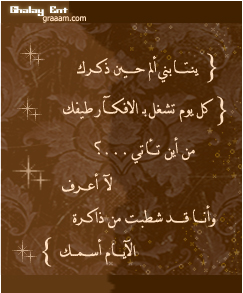 Ghalay Ent
graaam.com
{ ينتابني ألم حين ذكرك
{ كل يوم تشغل بـ الافكآر طيفك
من أين تـأتي . . . ؟
لآ أعرف
وأنا قد شطبت من ذاكرة
الآيام أسمك }